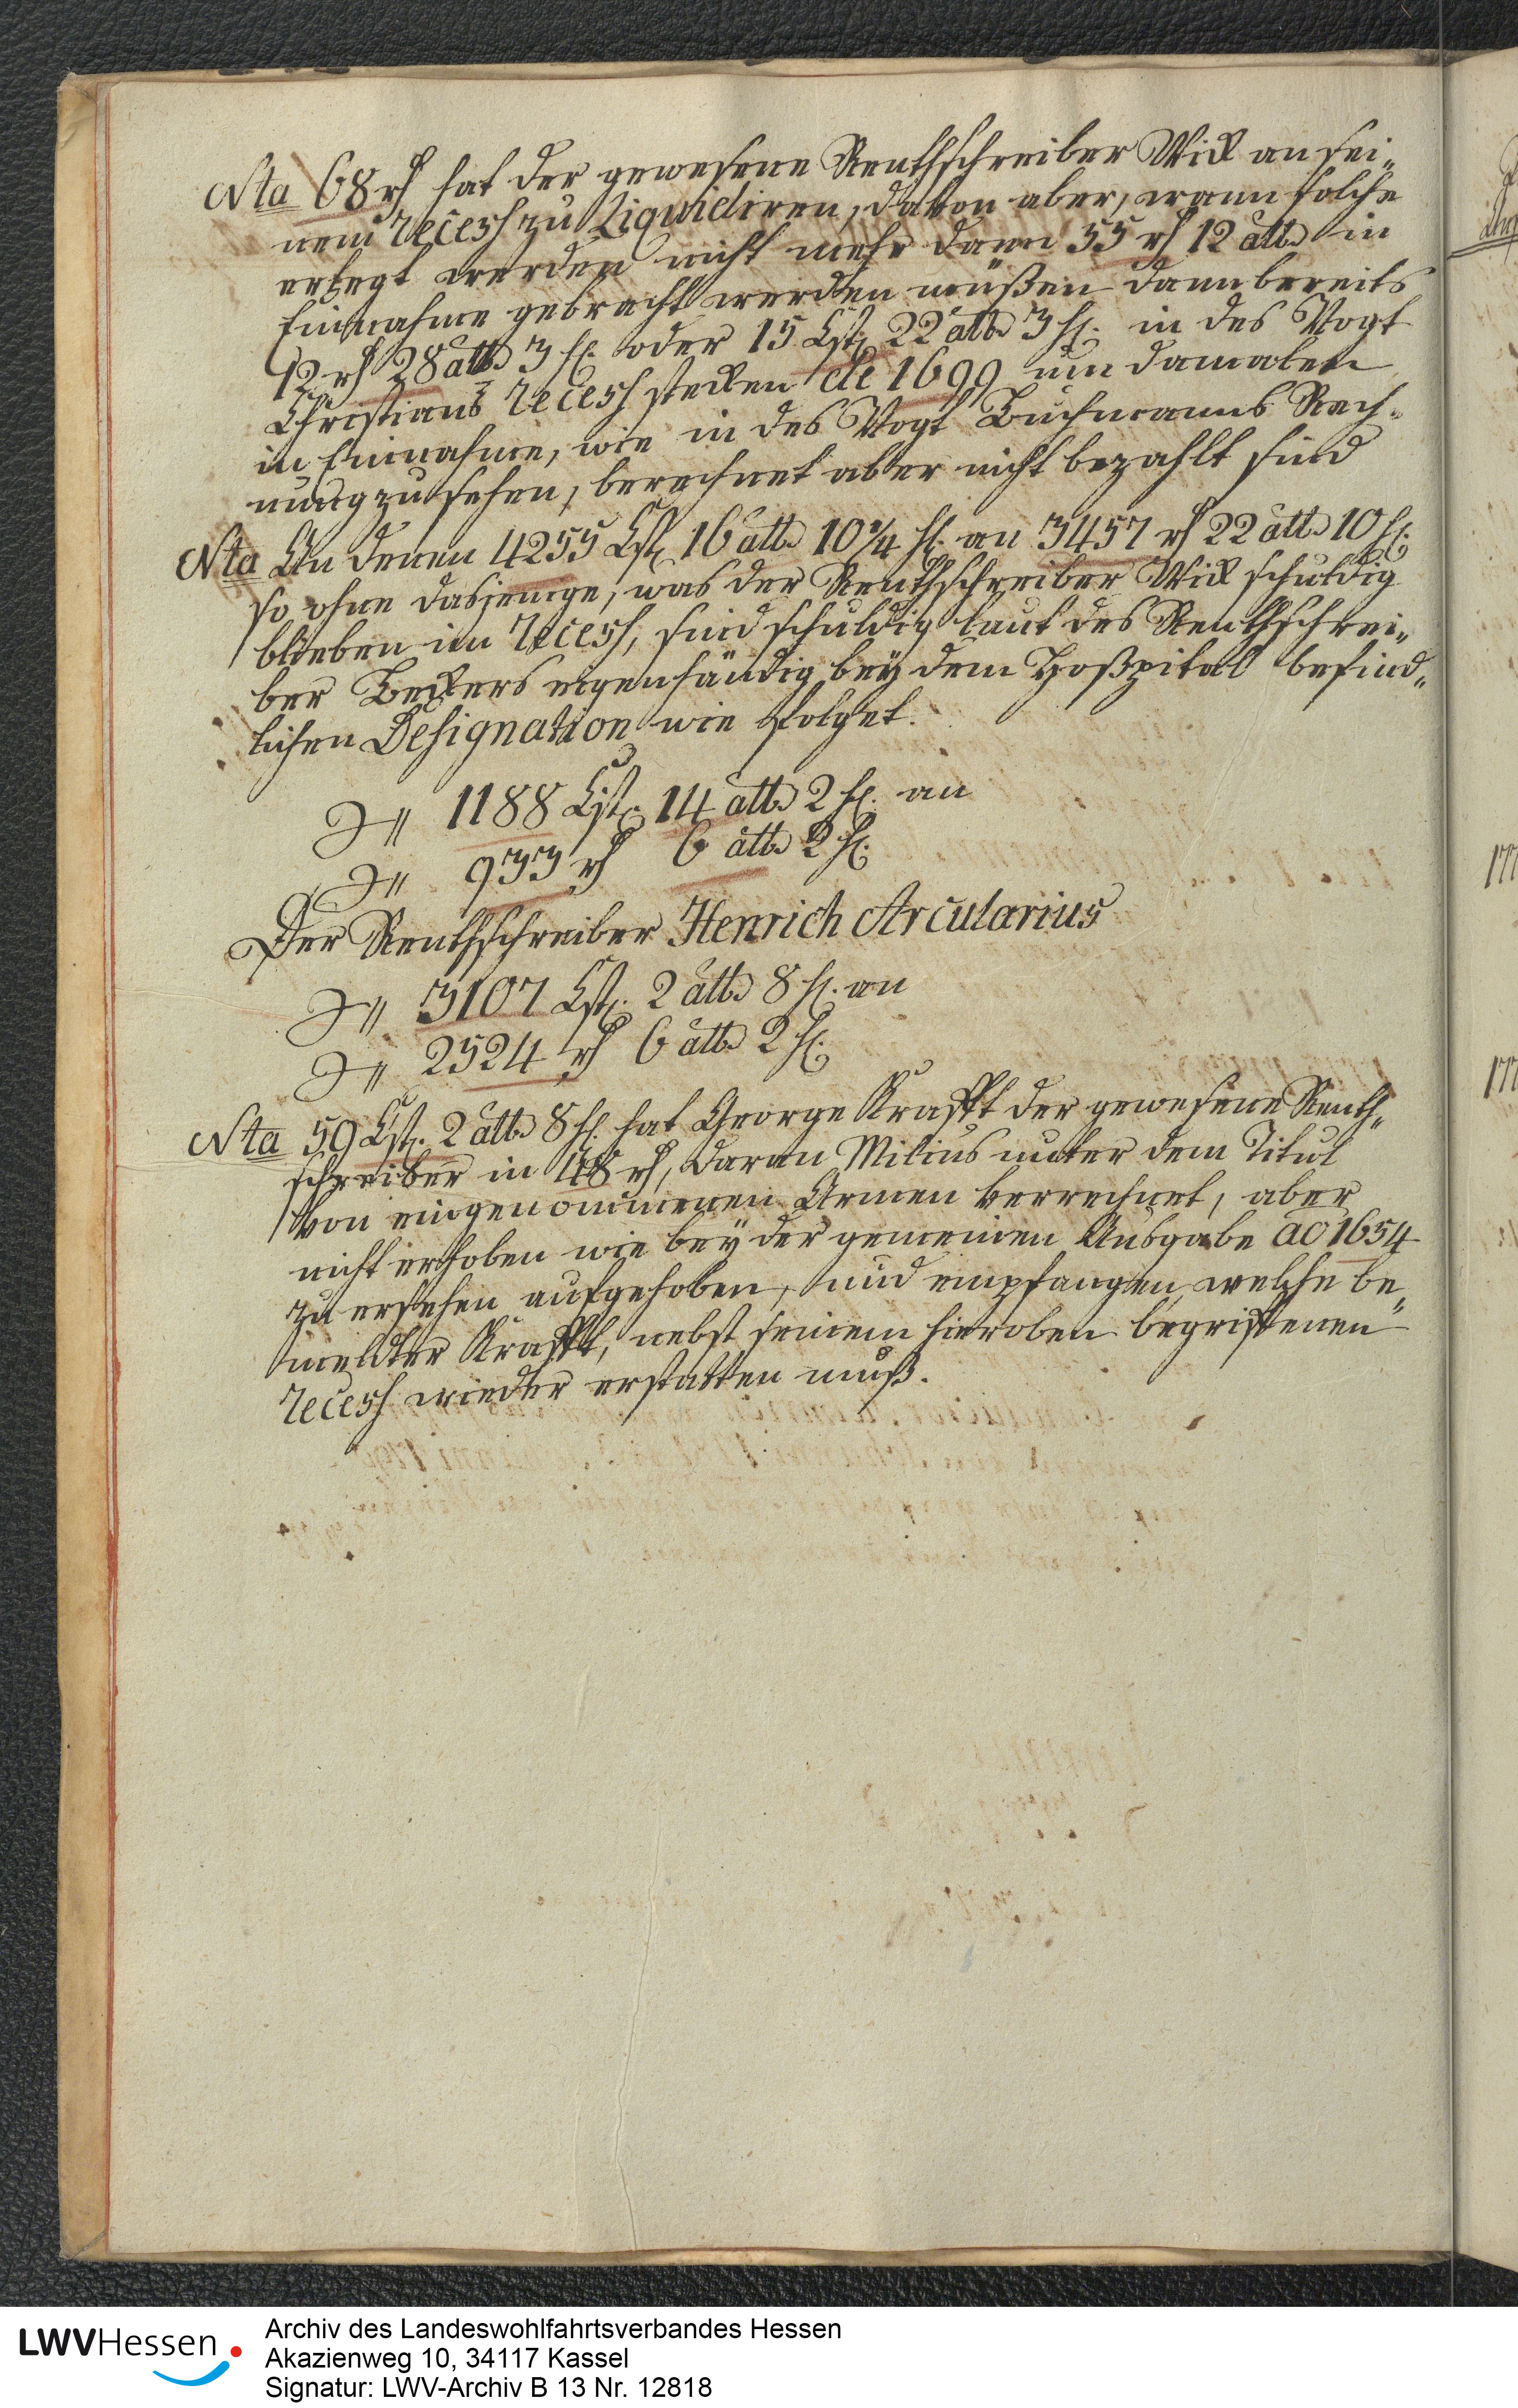 Nta 68 rh hat der gewesene Renthschreiber Wick an sei„
nem Recess zu Liquidiren, davon aber, wann solche
erlegt werden nicht mehr dann 55 rh 12 alb in
Einnahme gebracht werden müßen dann bereits
12 rh 28 alb 3 hl. oder 15 Gld 22 alb 3 hl. in des Vogt
Christians Recess stecken de 1699 um damalen
in Einnahme, wie in des Vogt Buchmanns Rech„
nung zu sehen, berechnet aber nicht bezahlt sind
Nta An denen 4255 Gld 16 alb 10¼ hl. an 3457 rh 22 alb 10 hl.
so ohne dasjenige, was der Renthschreiber Wick schuldig
blieben im Recess, sind schuldig laut des Renthschrei„
ber Beckers eigenhändig bey dem Hoßpital befind„
lichen Designation wie folget.
1188 Gld. 14 alb 2 hl. an
933 rh 6 alb 2 hl.
Der Renthschreiber Henrich Arcularius
3107 Gld. 2 alb 8 hl. an
2524 rh 6 alb 2 hl.
Nta 59 Gld. 2 alb 8 hl. hat George Krafft der gewesene Renth„
schreiber in 48 rh, daran Milius unter dem Titul
von eingenommenen Armen verrechnet, aber
nicht erhoben wie bey der gemeinen Ausgabe ao 1654
zu ersehen aufgehoben, und empfangen, welche be„
meldter Krafft, nebst seinem hieroben begriffenen
Recess wieder erstatten muß.
LWVHessen
Archiv des Landeswohlfahrtsverbandes Hessen
Akazienweg 10, 34117 Kassel
Signatur: LWV-Archiv B 13 Nr. 12818